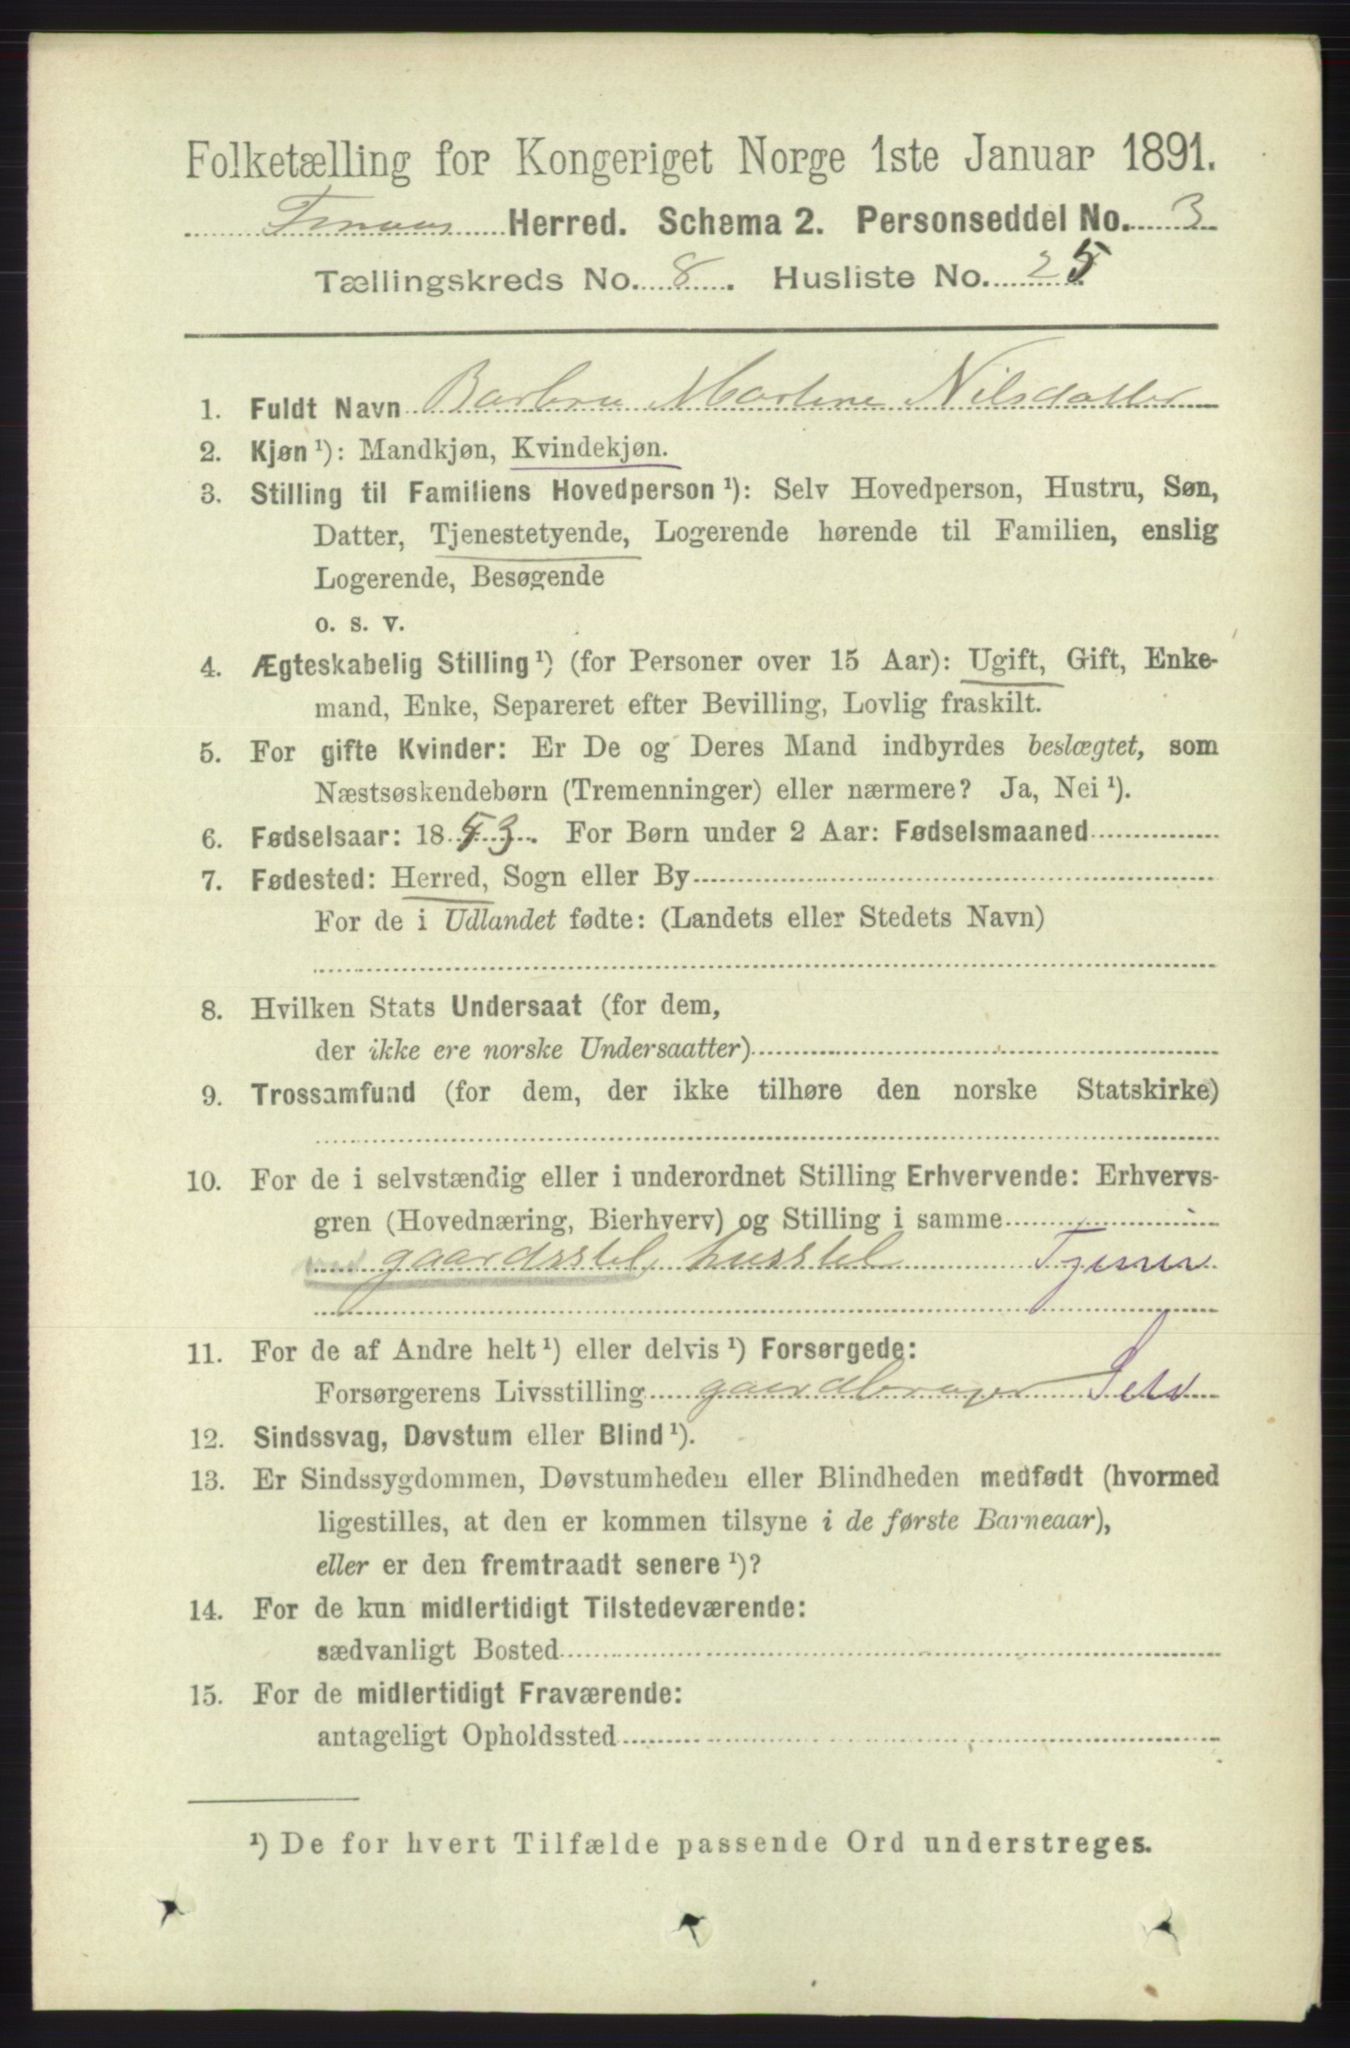 Folketælling for Kongeriget Norge 1ste Januar 1891.
Finnaas Herred. Schema 2. Personseddel No. 3
Tællingskreds No. 8. Husliste No. 25
1. Fuldt Navn Barbru Martine Nilsdatter
2. Kjøn ¹): Mandkjøn, Kvindekjøn.
3. Stilling til Familiens Hovedperson ¹): Selv Hovedperson, Hustru, Søn,
Datter, Tjenestetyende, Logerende hørende til Familien, enslig
Logerende, Besøgende
o. s. v.
4. Ægteskabelig Stilling ¹) (for Personer over 15 Aar): Ugift, Gift, Enke-
mand, Enke, Separeret efter Bevilling, Lovlig fraskilt.
5. For gifte Kvinder: Er De og Deres Mand indbyrdes beslægtet, som
Næstsøskendebørn (Tremenninger) eller nærmere? Ja, Nei ¹).
6. Fødselsaar: 1853. For Børn under 2 Aar: Fødselsmaaned
7. Fødested: Herred, Sogn eller By
For de i Udlandet fødte: (Landets eller Stedets Navn)
8. Hvilken Stats Undersaat (for dem,
der ikke ere norske Undersaatter)
9. Trossamfund (for dem, der ikke tilhøre den norske Statskirke)
10. For de i selvstændig eller i underordnet Stilling Erhvervende: Erhvervs-
gren (Hovednæring, Bierhverv) og Stilling i samme
gaardsstel, husstel Tjener
11. For de af Andre helt ¹) eller delvis ¹) Forsørgede:
Forsørgerens Livsstilling gaardbruger Selv
12. Sindssvag, Døvstum eller Blind ¹).
13. Er Sindssygdommen, Døvstumheden eller Blindheden medfødt (hvormed
ligestilles, at den er kommen tilsyne i de første Barneaar),
eller er den fremtraadt senere ¹)?
14. For de kun midlertidigt Tilstedeværende:
sædvanligt Bosted
15. For de midlertidigt Fraværende:
antageligt Opholdssted
¹) De for hvert Tilfælde passende Ord understreges.